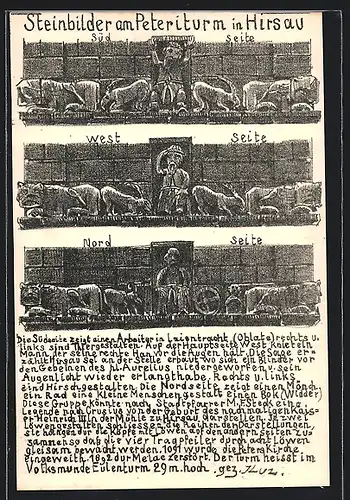 Steinbilder am Peteriturm in Hirsau
Süd Seite
West Seite
Nord Seite
Die Südseite zeigt einen Arbeiter in Laientracht, (Oblate) rechts u.
links sind Tiergestalten. Auf der Hauptseite West kniet ein
Mann, der seine rechte Han vor die Augen hält. Die Sage er=
zählt Hirsau sei an der Stelle erbaut wo sich ein Blinder vor
den Gebeinen des hl. Aurelius niedergeworfen u. sein
Augenlicht wieder erlangt habe. Rechts u. links
sind Hirschgestalten. Die Nordseite zeigt einen Mönch
ein Rad eine kleine Menschengestalt einen Bok (Widder)
Diese Gruppe könnte nach Stadtpfarrer M. Estock eine
Legende nach von der Geburt des nachmaligen Kais=
er Heinrich III in der Mühle zu Hirsau darstellen. Je zwei
Löwengestalten schliessen die Reihen der Darstellungen,
sie hängen die Köpfe mit Löwen der den andern seiten zu
sammen so daß die vier Tragpfeiler durch acht Löwen
gleisam bewacht werden. 1091 wurde die Peterkirche
eingeweiht, 1692 durch Melac zerstört. Der Turm heist im
Volksmunde Eulenturm 29 m. hoch. gez.